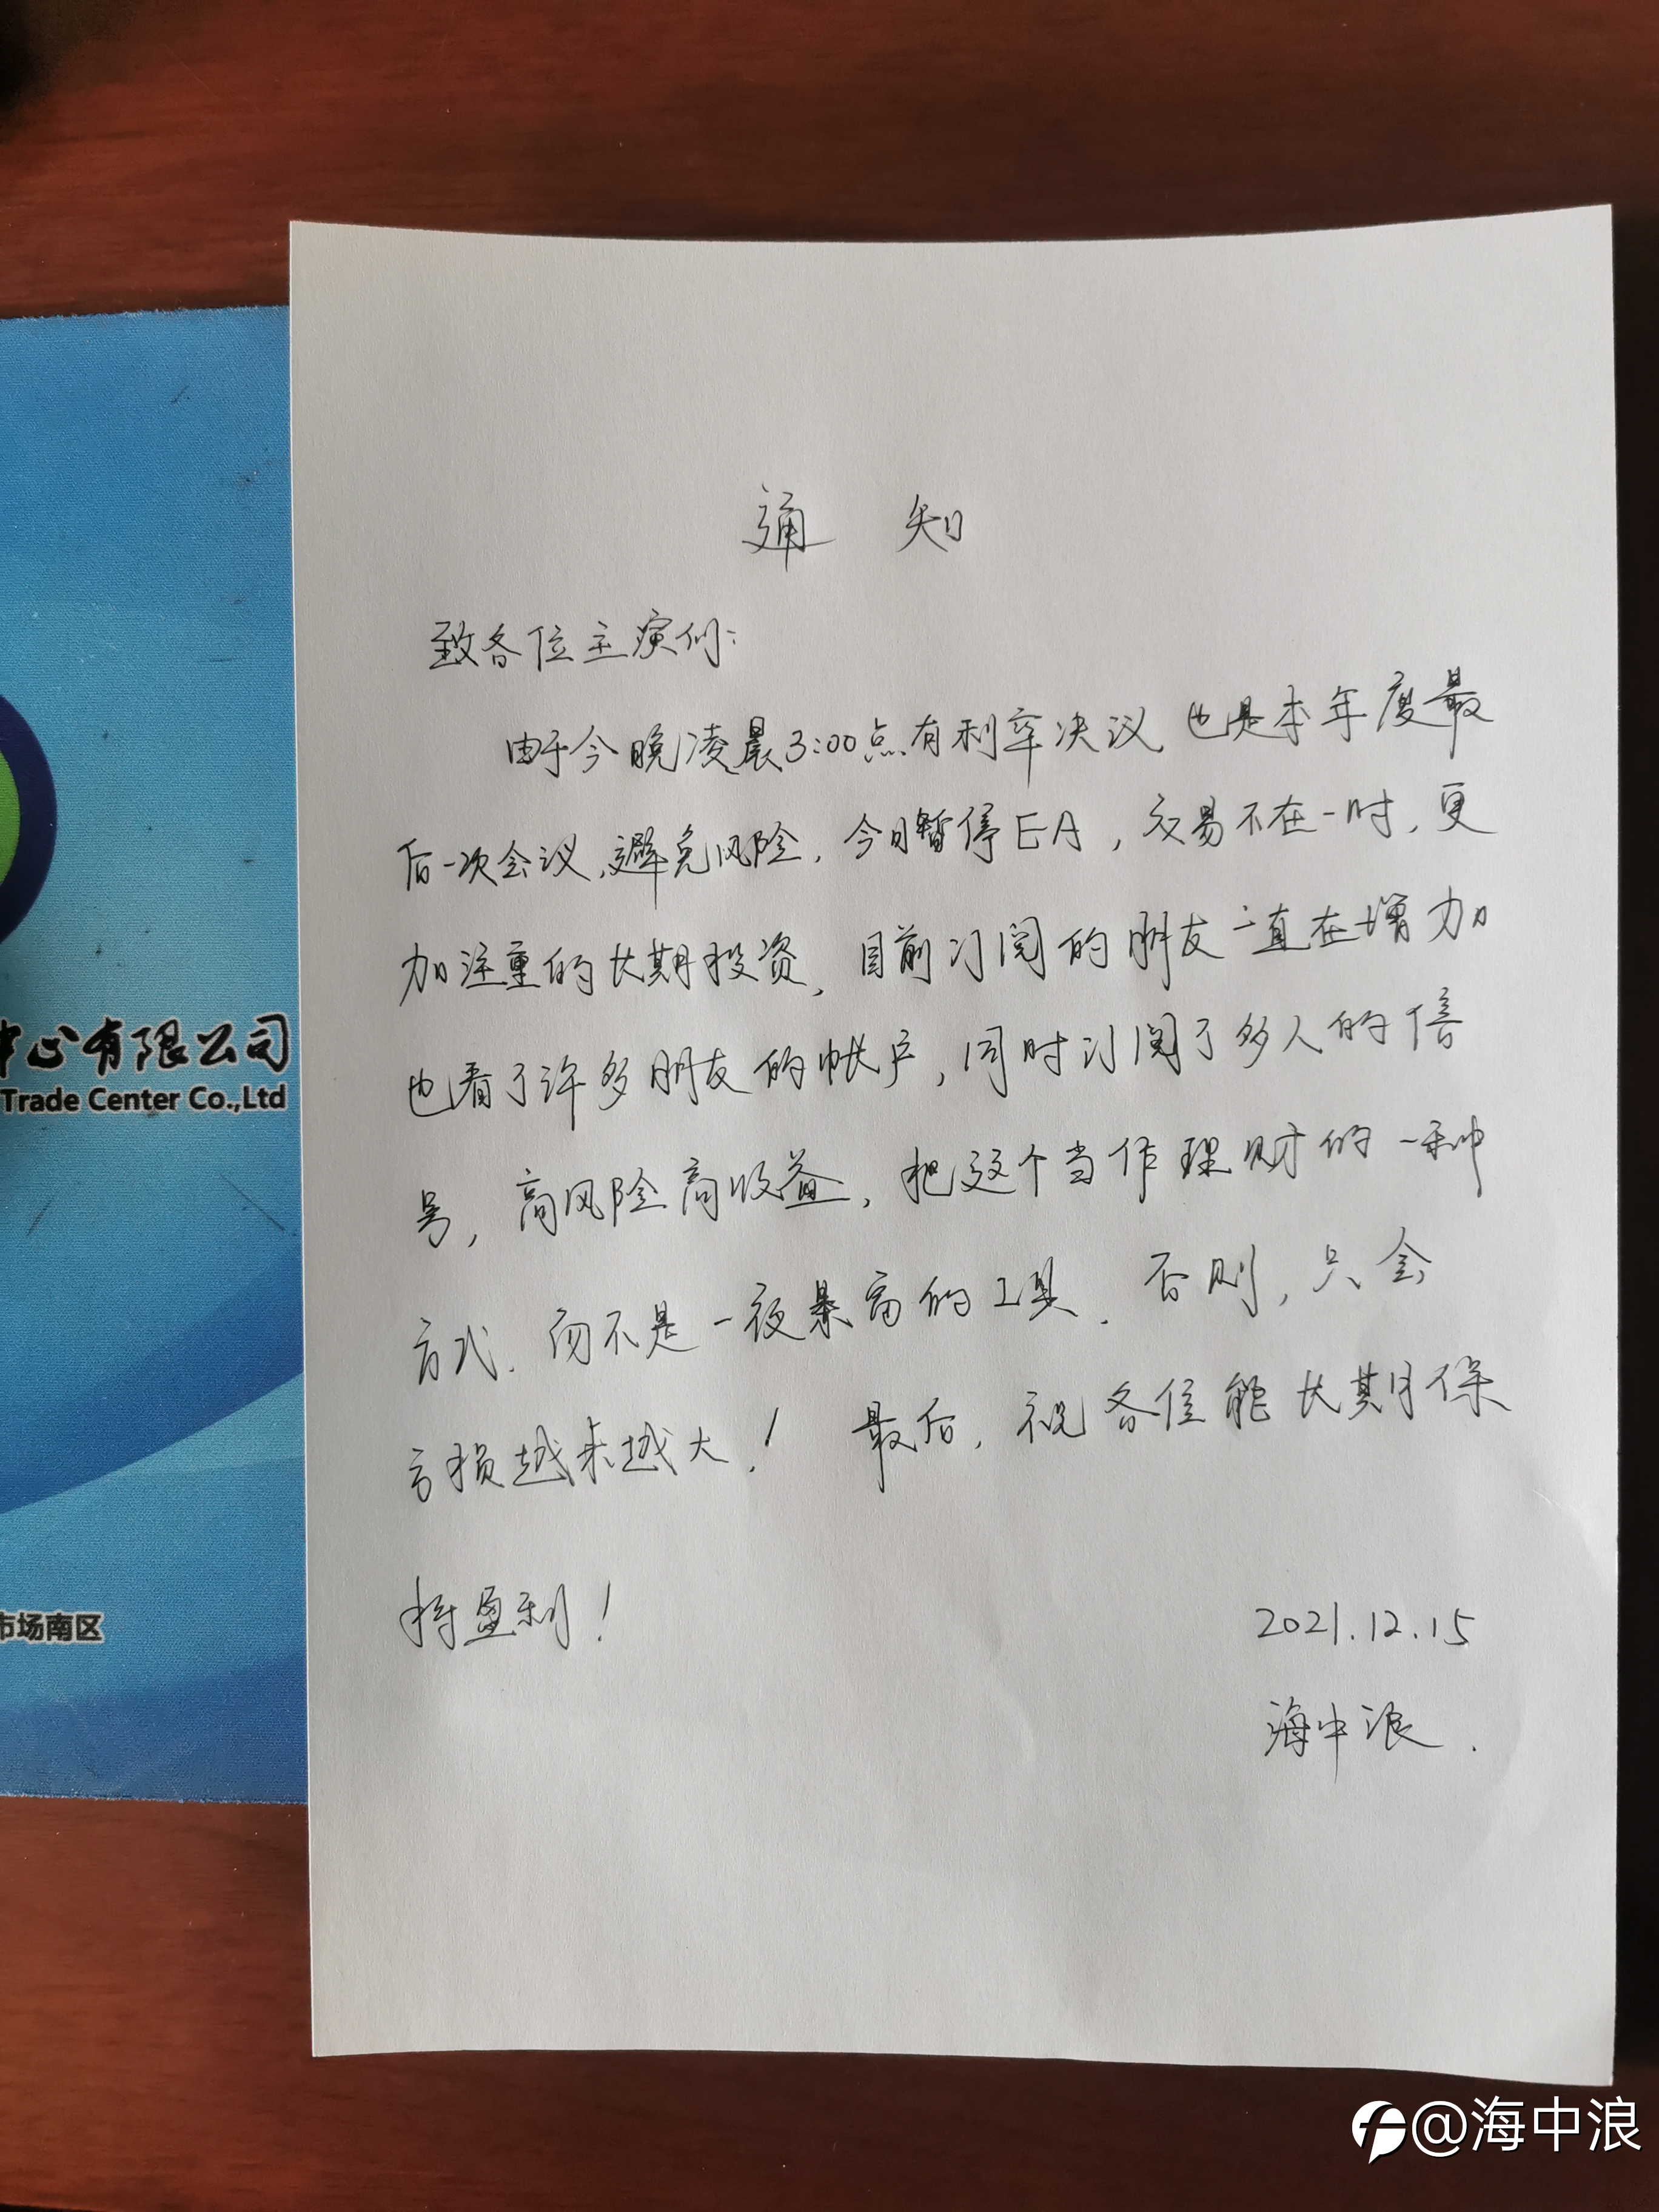 通 知
致各位主演们:
由于今晚凌晨3:00点有利率决议,也是本年度最
后一次会议,避免风险,今日暂停EA,交易不在一时,更
加注重的长期投资,目前订阅的朋友一直在增加
也看了许多朋友的帐户,同时订阅了多人的信
号,高风险高收益,把这个当作理财的一种
方式,而不是一夜暴富的工具.否则,只会
亏损越来越大!最后,祝各位能长期保
持盈利!
2021.12.15
海中浪.
中心有限公司
Trade Center Co.,Ltd
市场南区
@海中浪